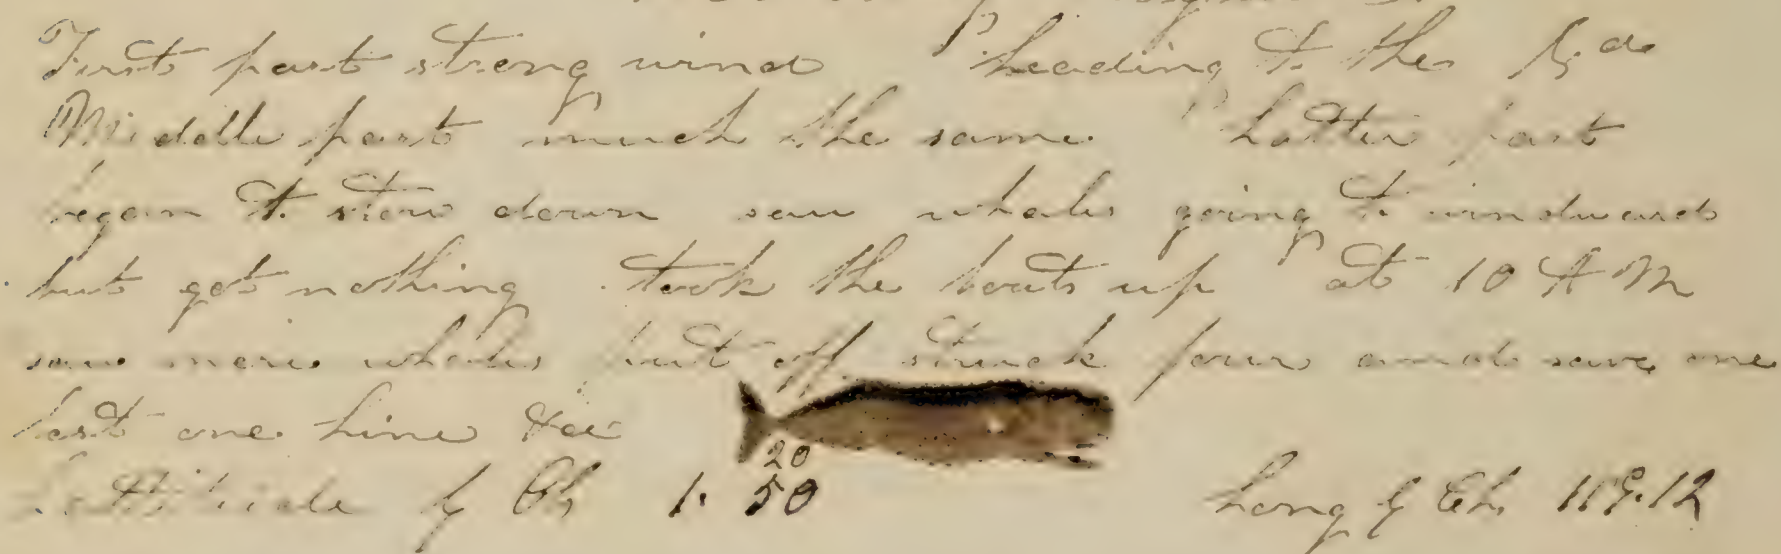 First part strong wind heading to the
Middle part much the same Latter part
began to stow down saw whales going to windward
but got nothing took the boats up at 10 AM
saw more whales put off struck four and save one
Lost one Line &c
20
Lattitude by Ob 1. 50 Long by Ch 119.12